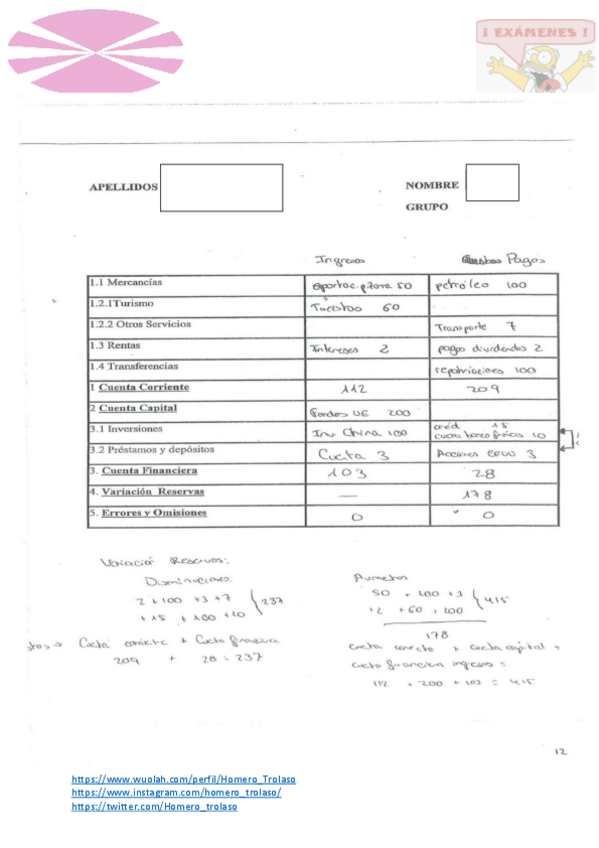 ¡ EXÁMENES !
APELLIDOS
NOMBRE
GRUPO
Ingresos Pagos
1.1 Mercancías 50 petróleo 100
1.2.1Turismo Turistas 60
1.2.2 Otros Servicios Transporte 7
1.3 Rentas Intereses 2 pagos dividendos 2
1.4 Transferencias repatriaciones 100
1 Cuenta Corriente 112 209
2 Cuenta Capital Fondos UE 200
3.1 Inversiones Inv. China 100 créd 15
10
3.2 Préstamos y depósitos Cuenta 3 Acciones EEUU 3
3. Cuenta Financiera 103 28
4. Variación Reservas — 178
5. Errores y Omisiones 0 0
Variación Reservas:
Disminuciones
2 + 100 + 3 + 7
+ 15 + 100 + 10
237
Aumentos
50 + 100 + 3
+ 2 + 60 + 200
415
178
Cuenta corriente + Cuenta financiera
209 + 28 = 237
cuenta corriente + cuenta capital +
cuenta financiera ingresos =
112 + 200 + 103 = 415
12
https://www.wuolah.com/perfil/Homero_Trolaso
https://www.instagram.com/homero_trolaso/
https://twitter.com/Homero_trolaso